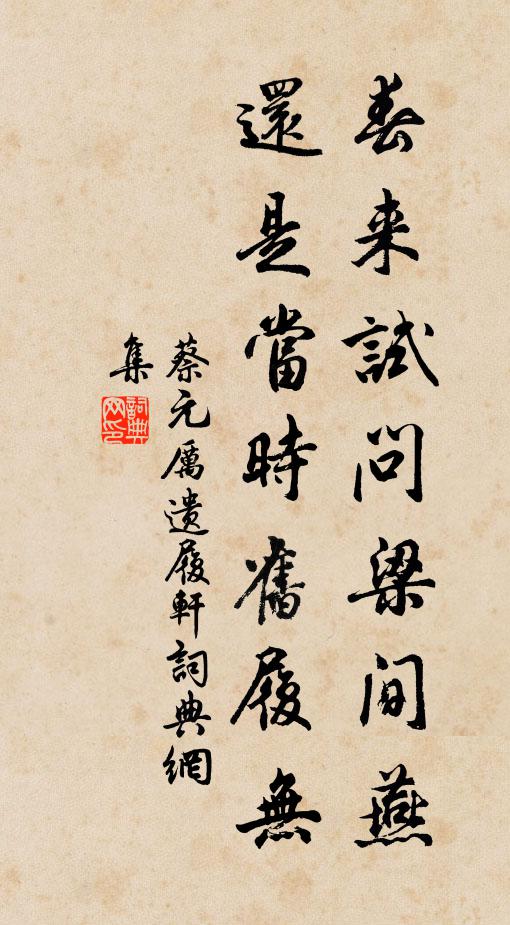 春来試問梁間燕
還是當時舊履無
蔡元厲遺履軒詞典網
集
詞典网印